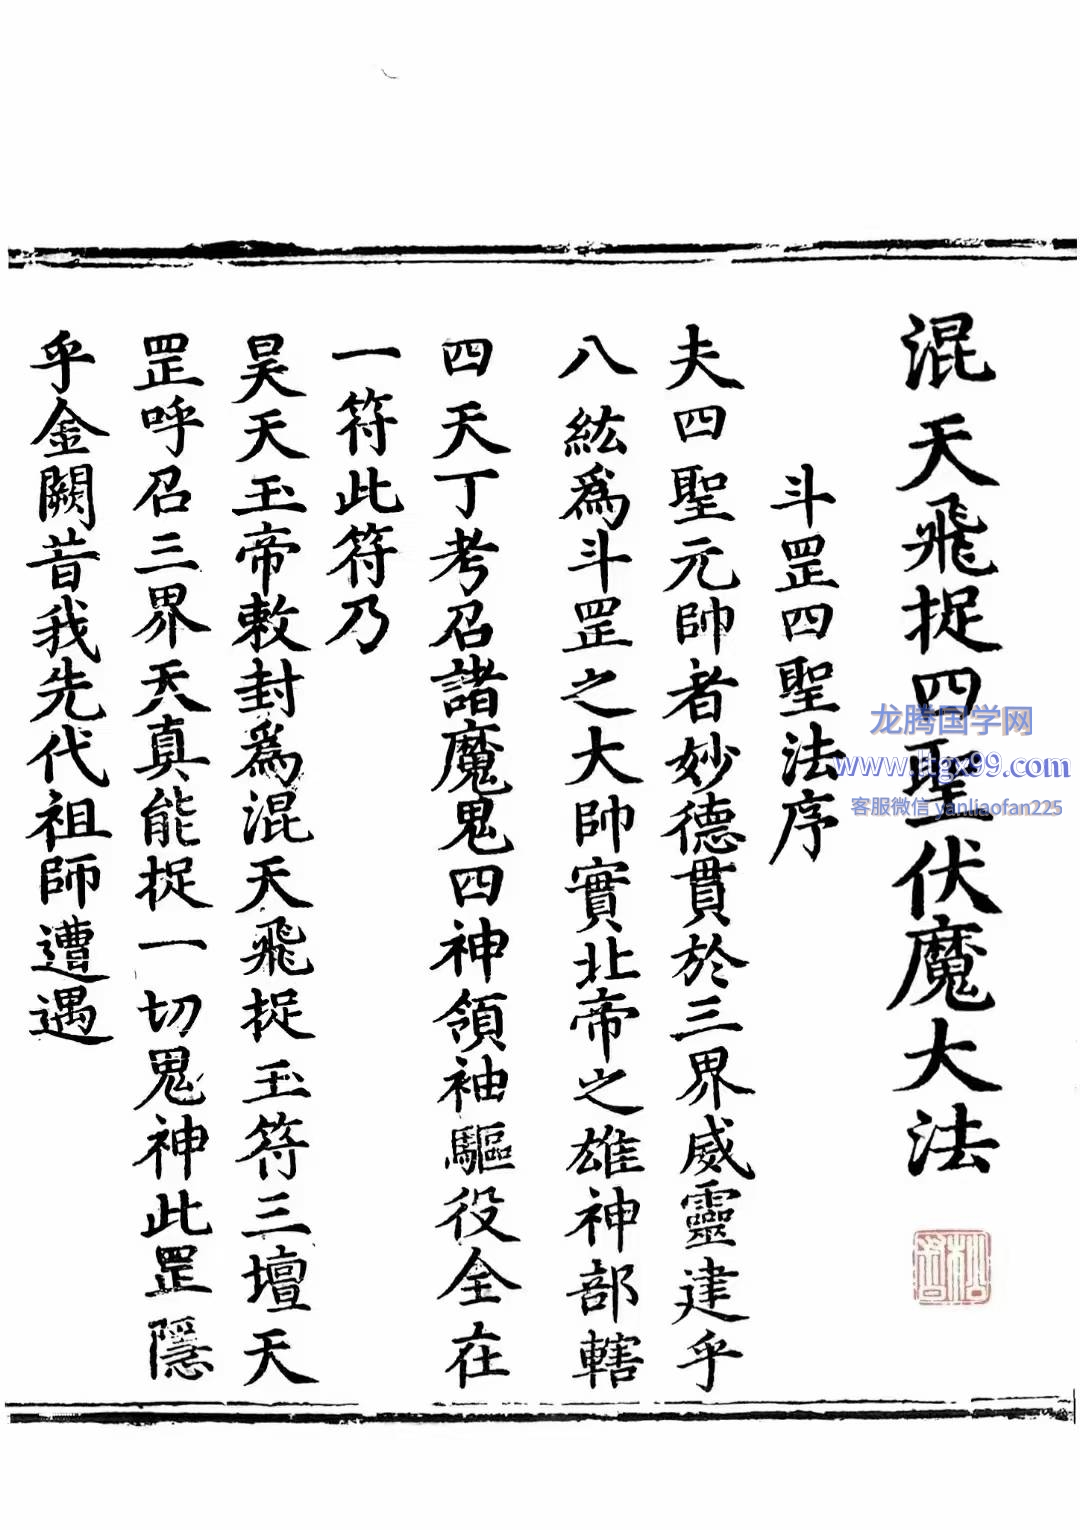 混天飛捉四聖伏魔大法
斗罡四聖法序
夫四聖元帥者妙德貫於三界威靈建乎
八紘爲斗罡之大帥實北帝之雄神部轄
四天丁考召諸魔鬼四神領袖驅役全在
一符此符乃
昊天玉帝敕封爲混天飛捉玉符三壇天
罡呼召三界天真能捉一切鬼神此罡隱
乎金闕昔我先代祖師遭遇
龙腾国学网
www.ltgx99.com
客服微信 yanliaofan225